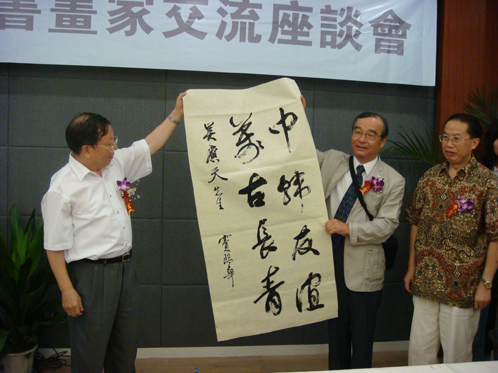 書畫家交流座談會
中韓友誼
萬古長青
天先生